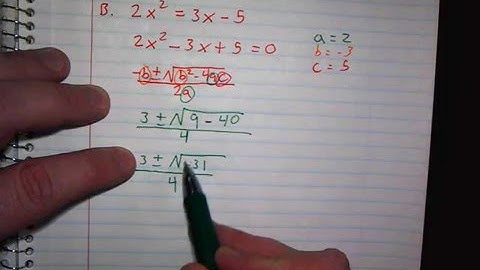 B. 2x² = 3x - 5
2x² - 3x + 5 = 0
a = 2
b = -3
c = 5
-b ± √b² - 4ac
2a
3 ± √9 - 40
4
3 ± √-31
4